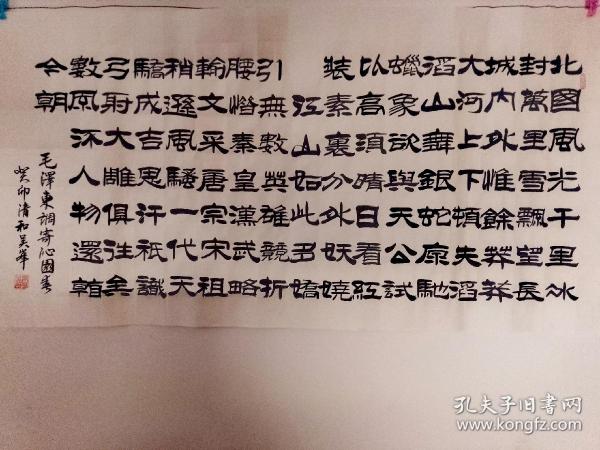 北國風光千里冰
封萬里雪飄望長
城內外惟餘莽莽
大河上下頓失滔
滔山舞銀蛇原馳
蠟象欲與天公試
以高須晴日看紅
裝素裹分外妖嬈
江山如此多嬌
引無數英雄競折
腰惜秦皇漢武略
輸文采唐宗宋祖
稍遜風騷一代天
驕成吉思汗祇識
弓射大雕俱往矣
數風流人物還看
今朝
毛澤東詞寄沁園春
癸卯清和吳華
孔夫子旧书网
www.kongfz.com